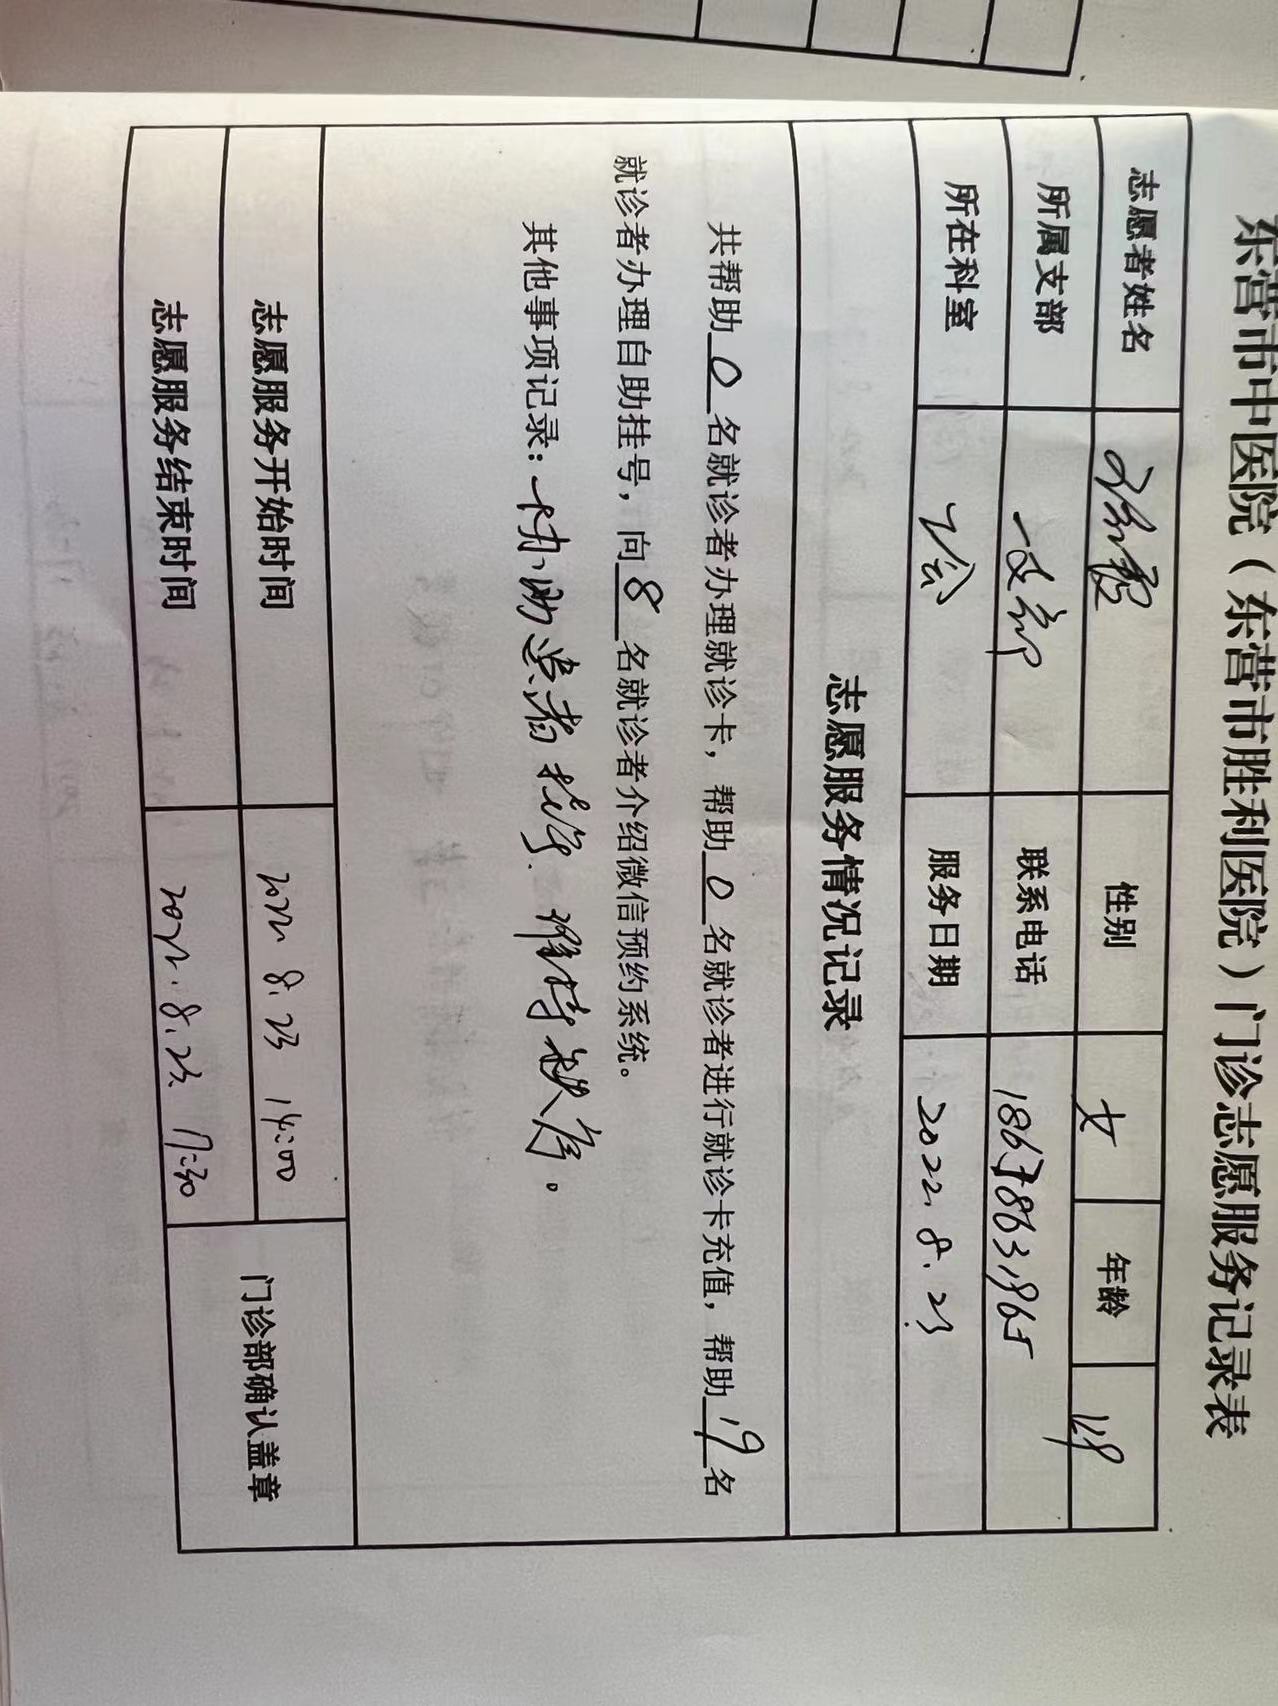 东营市中医院（东营市胜利医院）门诊志愿服务记录表
志愿者姓名 性别 女 年龄
所属支部 一支部 联系电话 18678631965
所在科室 工会 服务日期 2022.8.23
志愿服务情况记录
共帮助 0 名就诊者办理就诊卡，帮助 0 名就诊者进行就诊卡充值，帮助 19 名
就诊者办理自助挂号，向 8 名就诊者介绍微信预约系统。
其他事项记录：协助患者挂号. 维持秩序。
志愿服务开始时间 2022. 8. 23 14:00 门诊部确认盖章
志愿服务结束时间 2022. 8. 23. 17:30